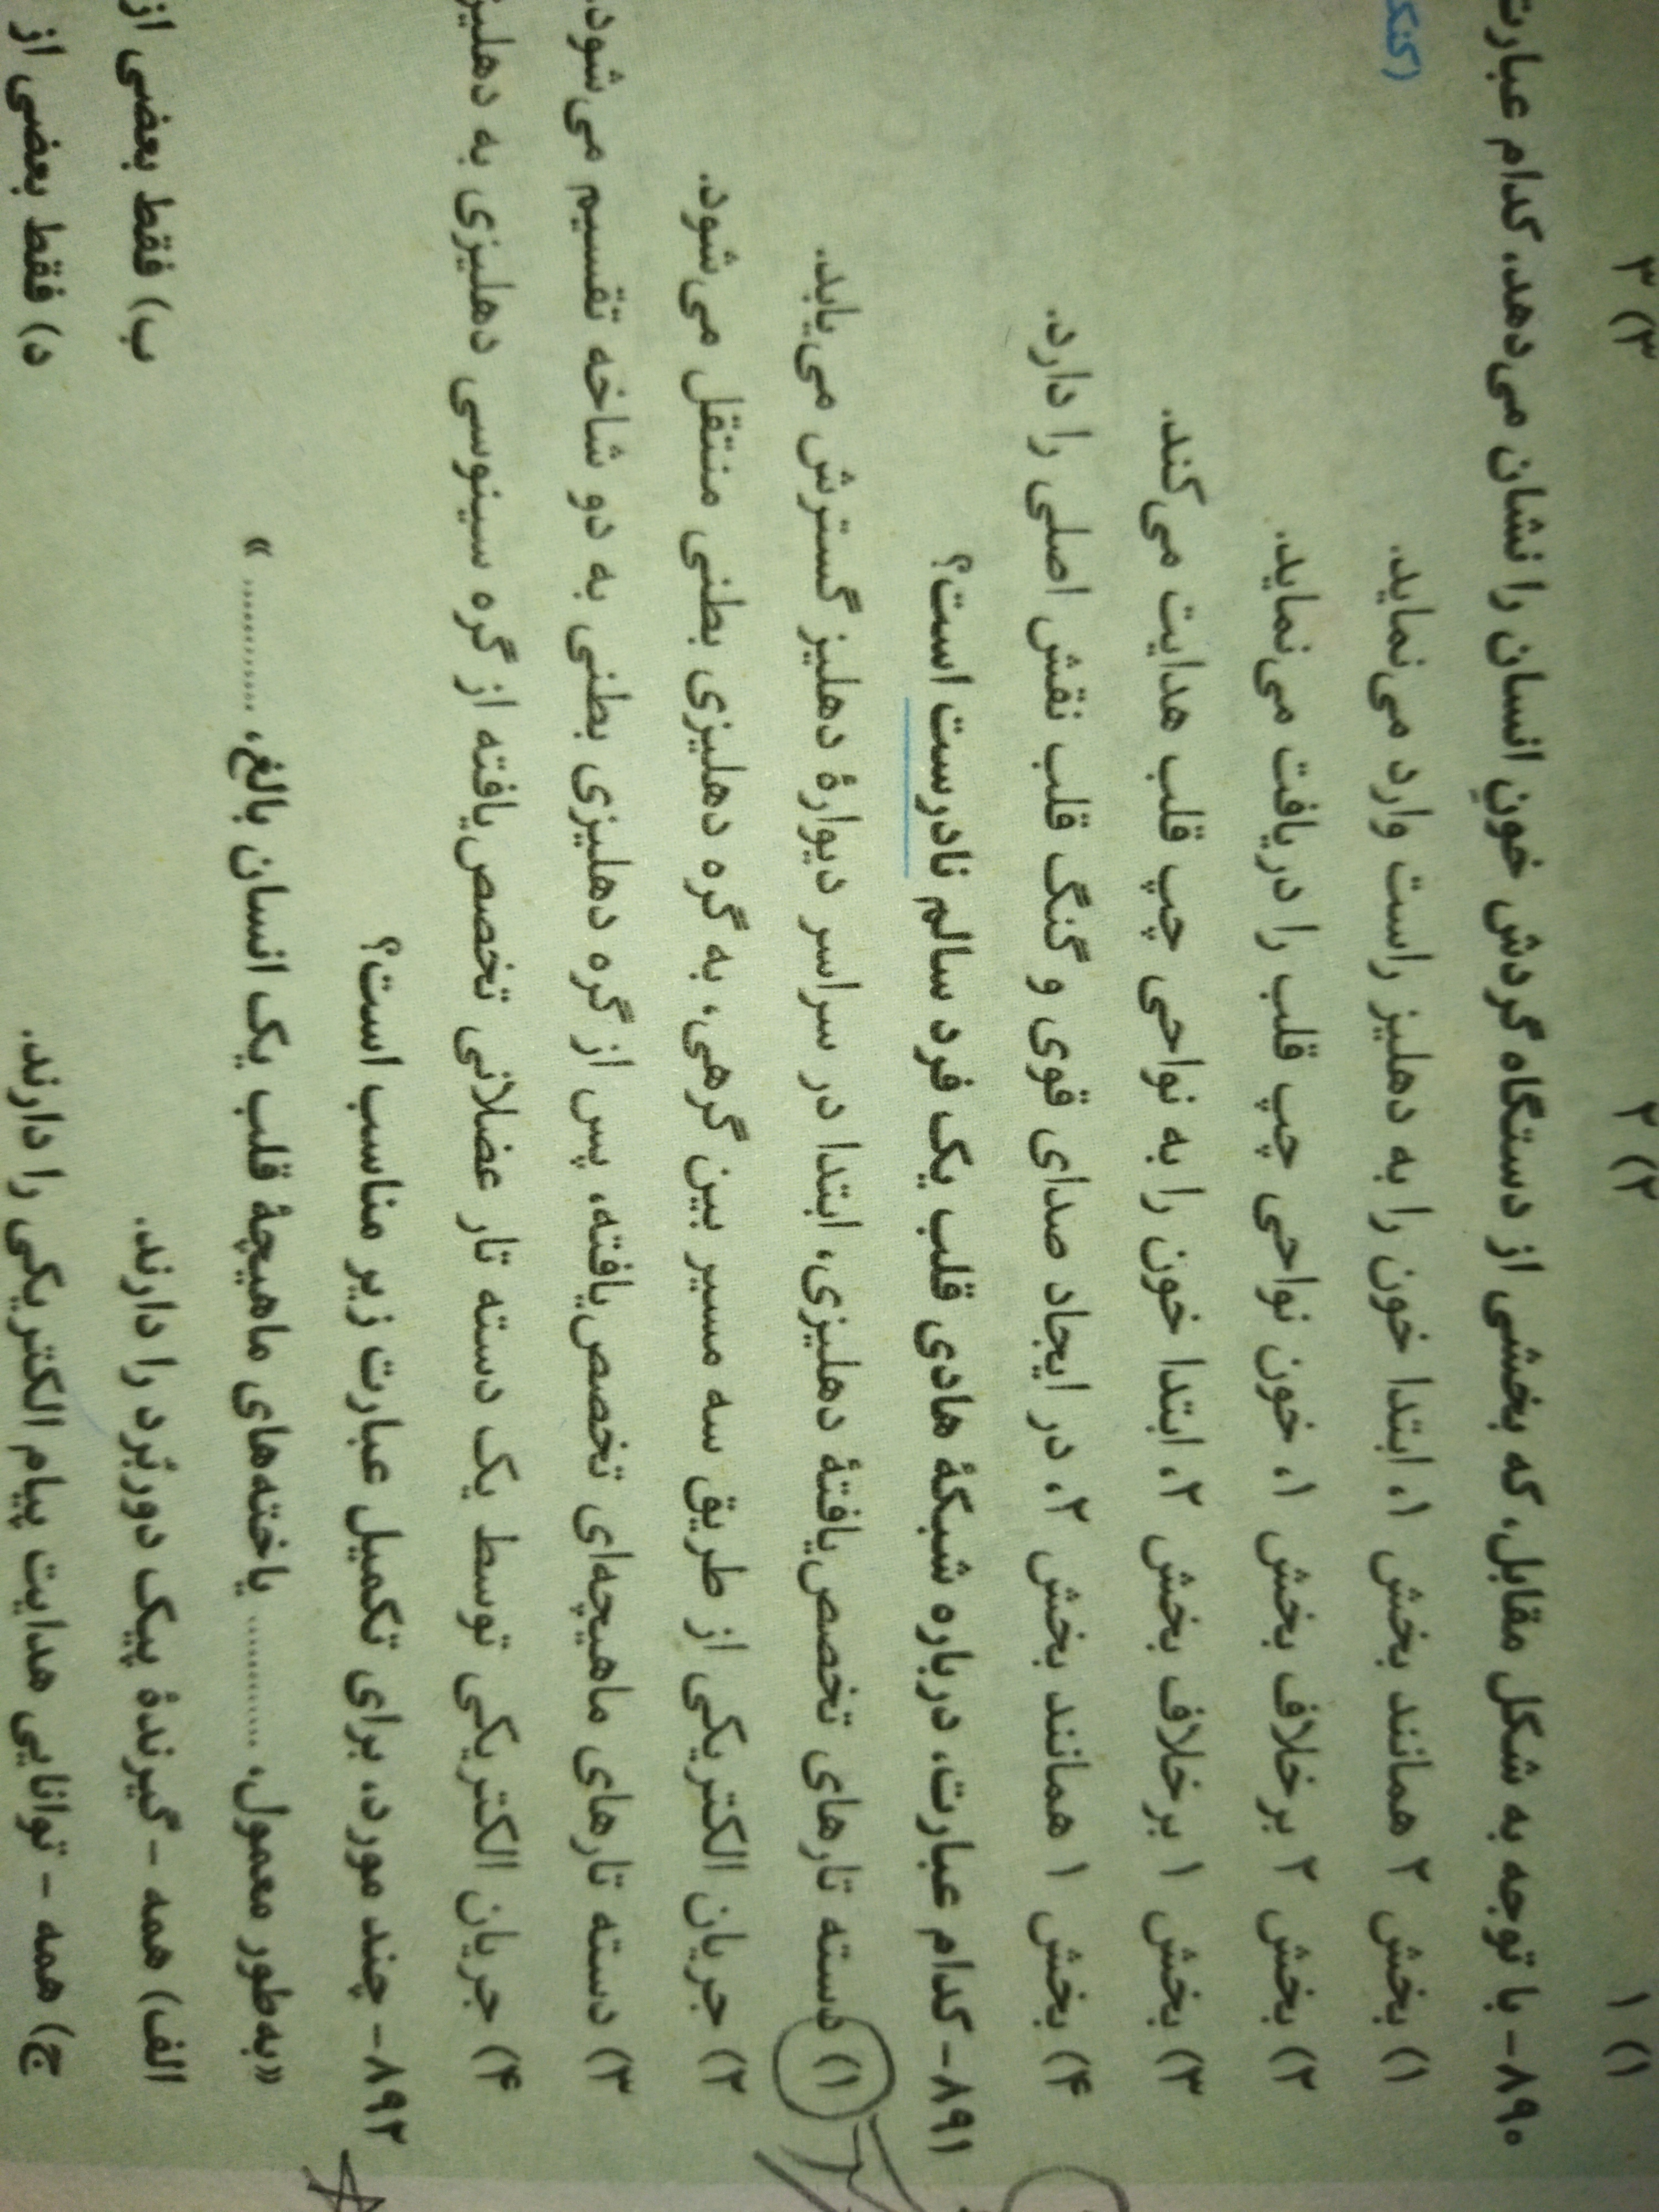 ۱) ۱ ۲) ۲ ۳) ۳
۸۹۰- با توجه به شکل مقابل، که بخشی از دستگاه گردش خونِ انسان را نشان می‌دهد، کدام عبارت
(کنک
۱) بخش ۲ همانند بخش ۱، ابتدا خون را به دهلیز راست وارد می‌نماید.
۲) بخش ۲ برخلاف بخش ۱، خون نواحی چپ قلب را دریافت می‌نماید.
۳) بخش ۱ برخلاف بخش ۲، ابتدا خون را به نواحی چپ قلب هدایت می‌کند.
۴) بخش ۱ همانند بخش ۲، در ایجاد صدای قوی و گنگ قلب نقش اصلی را دارد.
۸۹۱- کدام عبارت، درباره شبکهٔ هادی قلب یک فرد سالم نادرست است؟
۱) دسته تارهای تخصص‌یافتهٔ دهلیزی، ابتدا در سراسر دیوارهٔ دهلیز گسترش می‌یابد.
۲) جریان الکتریکی از طریق سه مسیر بین گرهی، به گره دهلیزی بطنی منتقل می‌شود.
۳) دسته تارهای ماهیچه‌ای تخصص‌یافته، پس از گره دهلیزی بطنی به دو شاخه تقسیم می‌شود.
۴) جریان الکتریکی توسط یک دسته تار عضلانی تخصص‌یافته از گره سینوسی دهلیزی به دهلیز
۸۹۲- چند مورد، برای تکمیل عبارت زیر مناسب است؟
«به‌طور معمول، ............ یاخته‌های ماهیچهٔ قلب یک انسان بالغ، ............ »
الف) همه - گیرندهٔ پیک دوربُرد را دارند. ب) فقط بعضی از
ج) همه - توانایی هدایت پیام الکتریکی را دارند. د) فقط بعضی از